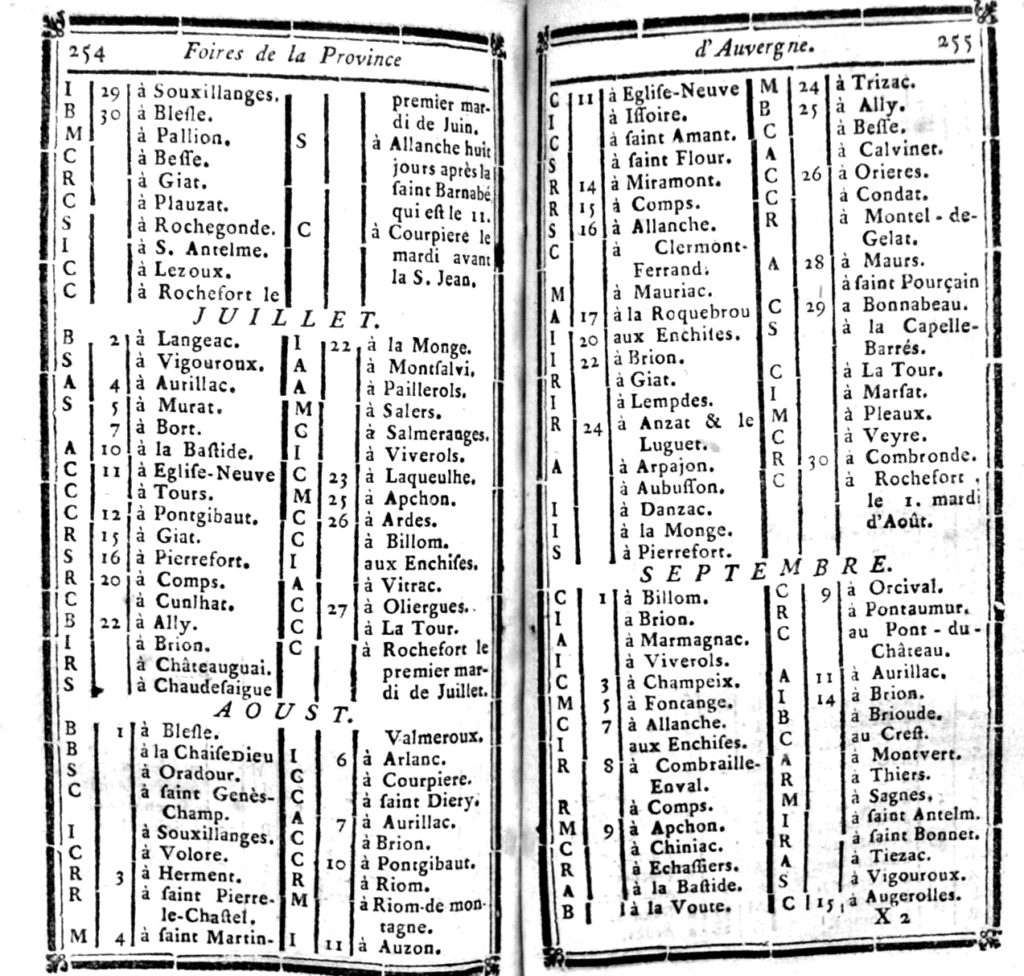 254 Foires de la Province
I 29 à Souxillanges.
B 30 à Blesle.
M à Pallion.
C à Besse.
R à Giat.
C à Plauzat.
S à Rochegonde.
I à S. Antelme.
C à Lezoux.
C à Rochefort le
premier mar-
di de Juin.
S à Allanche huit
jours après la
saint Barnabé
qui est le 11.
C à Courpiere le
mardi avant
la S. Jean.
JUILLET.
B 2 à Langeac.
S à Vigouroux.
A 4 à Aurillac.
S 5 à Murat.
7 à Bort.
A 10 à la Bastide.
C 11 à Eglise-Neuve
C à Tours.
C 12 à Pontgibaut.
R 15 à Giat.
S 16 à Pierrefort.
R 20 à Comps.
C à Cunlhat.
B 22 à Ally.
I à Brion.
R à Châteauguai.
S à Chaudesaigue
I 22 à la Monge.
A à Montsalvi.
A à Paillerols.
M à Salers.
C à Salmeranges.
I à Viverols.
C 23 à Laqueulhe.
M 25 à Apchon.
C 26 à Ardes.
C à Billom.
I aux Enchises.
A à Vitrac.
C 27 à Oliergues.
C à La Tour.
C à Rochefort le
premier mar-
di de Juillet.
AOUST.
B 1 à Blesle.
B à la Chaise Dieu
S à Oradour.
C à saint Genès-
Champ.
I à Souxillanges.
C à Volore.
R 3 à Herment.
R à saint Pierre-
le-Chastel.
M 4 à saint Martin-
Valmeroux.
I 6 à Arlanc.
C à Courpiere.
C à saint Diery.
A 7 à Aurillac.
C à Brion.
C 10 à Pontgibaut.
R à Riom.
M à Riom-de mon-
tagne.
I 11 à Auzon.
d'Auvergne. 255
C 11 à Eglise-Neuve
I à Issoire.
C à saint Amant.
S à saint Flour.
R 14 à Miramont.
R 15 à Comps.
S 16 à Allanche.
C à Clermont-
Ferrand.
M à Mauriac.
A 17 à la Roquebrou
I 20 aux Enchises.
I 22 à Brion.
R à Giat.
I à Lempdes.
R 24 à Anzat & le
Luguet.
A à Arpajon.
à Aubusson.
I à Danzac.
I à la Monge.
S à Pierrefort.
M 24 à Trizac.
B 25 à Ally.
C à Besse.
A à Calvinet.
C 26 à Orieres.
C à Condat.
R à Montel-de-
Gelat.
A 28 à Maurs.
à saint Pourçain
C 29 a Bonnabeau.
S à la Capelle-
Barrés.
C à La Tour.
I à Marsat.
M à Pleaux.
C à Veyre.
R 30 à Combronde.
C à Rochefort
le 1. mardi
d'Août.
SEPTEMBRE.
C 1 à Billom.
I à Brion.
A à Marmagnac.
I à Viverols.
C 3 à Champeix.
M 5 à Fontange.
C 7 à Allanche.
I aux Enchises.
R 8 à Combraille-
Enval.
R à Comps.
M 9 à Apchon.
C à Chiniac.
R à Echassiers.
A à la Bastide.
B à la Voute.
C 9 à Orcival.
R à Pontaumur.
C au Pont-du-
Château.
A 11 à Aurillac.
I 14 à Brion.
B à Brioude.
C au Crest.
A à Montvert.
R à Thiers.
M à Sagnes.
I à saint Antelm.
R à saint Bonnet.
A à Tiezac.
S à Vigouroux.
C 15 à Augerolles.
X 2